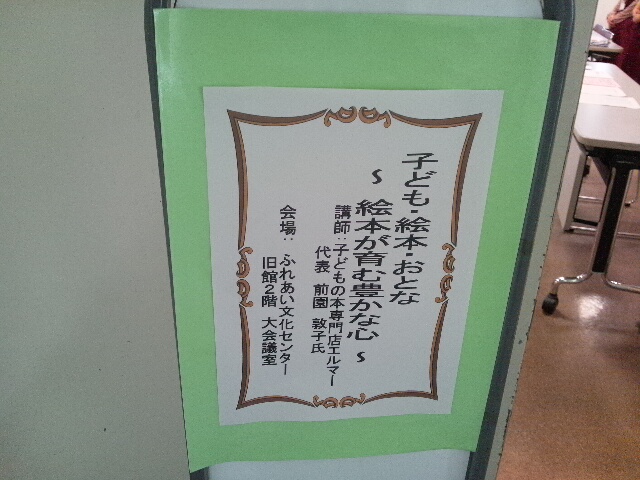 子ども・絵本・おとな
～ 絵本が育む豊かな心 ～
講師：子どもの本専門店エルマー
代表 前園 敦子氏
会場：ふれあい文化センター
旧館２階 大会議室